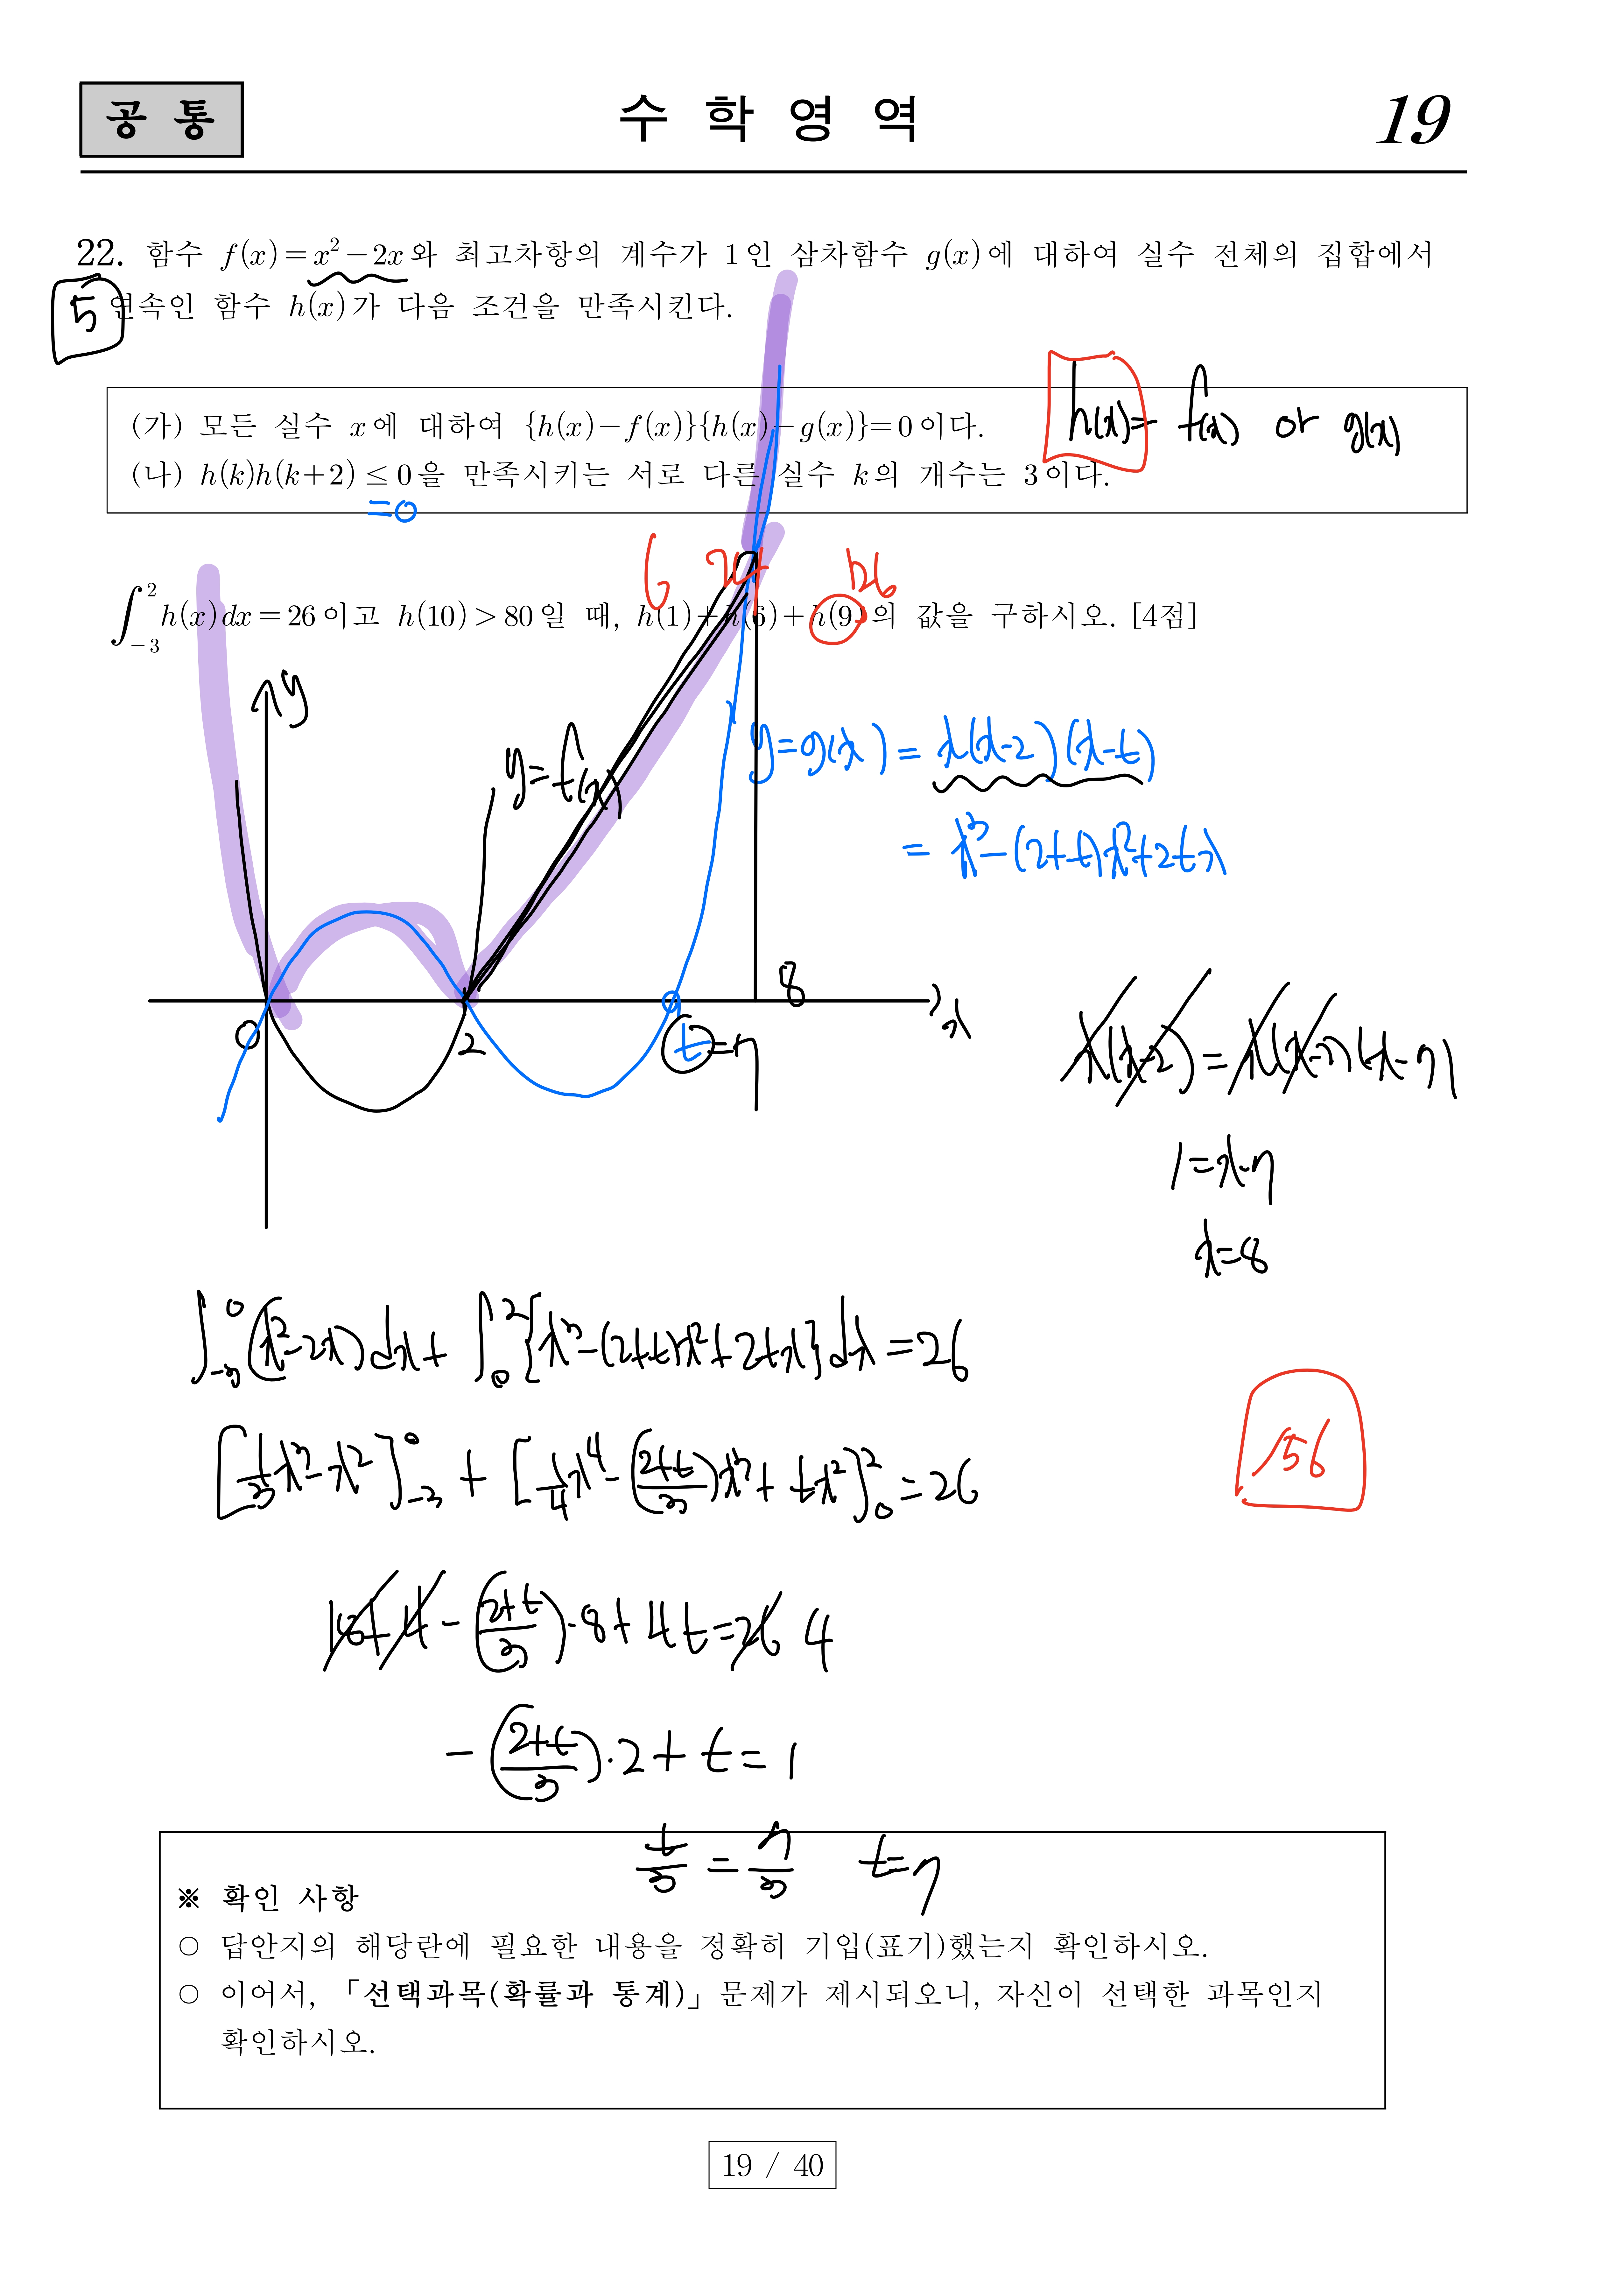 공 통
수 학 영 역
19
22. 함수 f(x)=x²-2x와 최고차항의 계수가 1인 삼차함수 g(x)에 대하여 실수 전체의 집합에서
5
연속인 함수 h(x)가 다음 조건을 만족시킨다.
(가) 모든 실수 x에 대하여 {h(x)-f(x)}{h(x)-g(x)}=0이다.
h(x)= f(x) or g(x)
(나) h(k)h(k+2)≤0을 만족시키는 서로 다른 실수 k의 개수는 3이다.
=0
6 24 126
∫₋₃² h(x)dx=26이고 h(10)>80일 때, h(1)+h(6)+h(9)의 값을 구하시오. [4점]
y
y=f(x)
y=g(x)=x(x-2)(x-t)
=x³-(2+t)x²+2tx
0
2
t=7
8
x
x(x-2)=x(x-2)(x-7)
1=x-7
x=8
∫₋₃⁰(x²-2x)dx+∫₀²{x³-(2+t)x²+2tx}dx=26
[1/3x³-x²]₋₃⁰+[1/4x⁴-(2+t/3)x³+tx²]₀²=26
156
18+4-(2+t/3)·8+4t=26 4
-(2+t/3)·2+t=1
t/3=7/3 t=7
※ 확인 사항
○ 답안지의 해당란에 필요한 내용을 정확히 기입(표기)했는지 확인하시오.
○ 이어서, 「선택과목(확률과 통계)」 문제가 제시되오니, 자신이 선택한 과목인지
확인하시오.
19 / 40